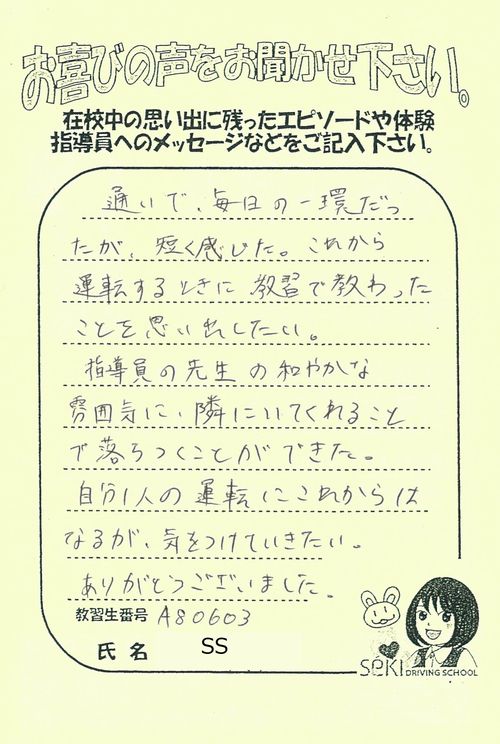 お喜びの声をお聞かせ下さい。
在校中の思い出に残ったエピソードや体験
指導員へのメッセージなどをご記入下さい。
通いで、毎日の一環だっ
たが、短く感じた。これから
運転するときに教習で教わった
ことを思い出したい。
指導員の先生の和やかな
雰囲気に、隣にいてくれること
で落ちつくことができた。
自分1人の運転にこれからは
なるが、気をつけていきたい。
ありがとうございました。
教習生番号 A80603
氏名 SS
SeKI DRIVING SCHOOL